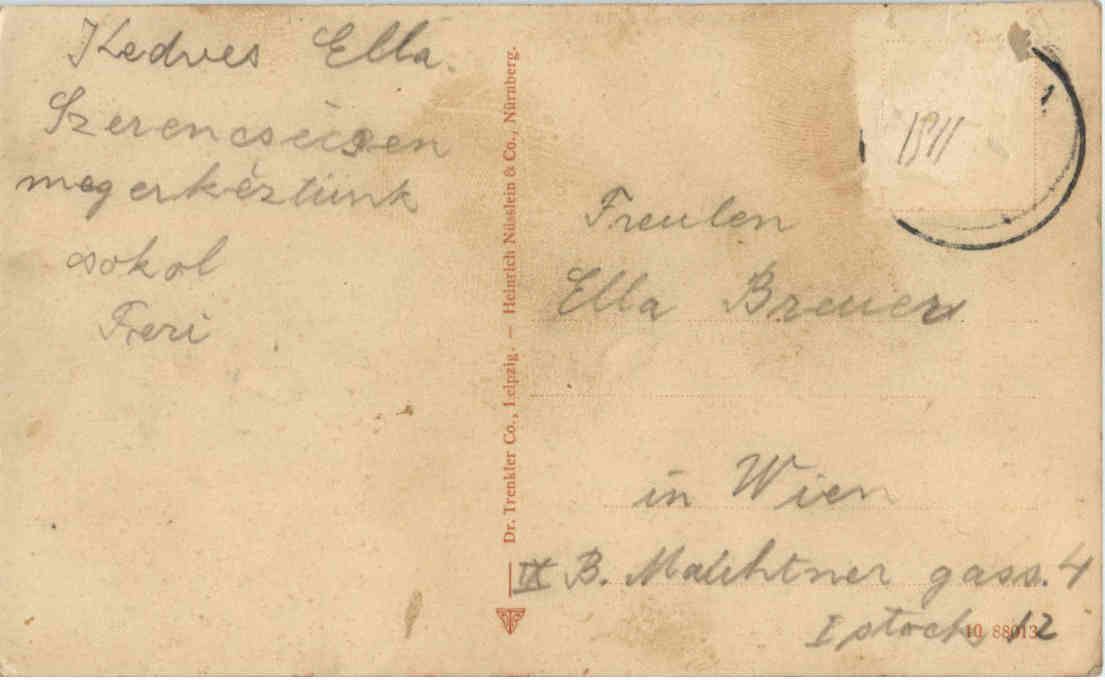 Kedves Ella.
Szerencsésen
meg erkéztünk
csokol
Feri
Dr. Trenkler Co., Leipzig. — Heinrich Nüsslein & Co., Nürnberg.
1911
Freulen
Ella Breuer
in Wien
IX B. gass. 4
I stock 12
10 88013